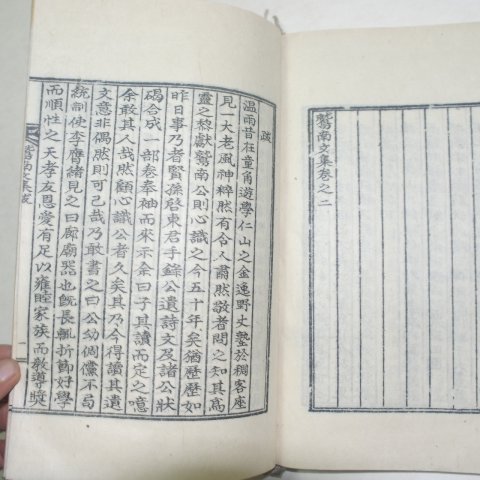 鷲南文集卷之二
跋
溫雨昔在童角遊學仁山之金逸野丈塾於稠客座
見一大老風神粹然有令人肅然敬者問之知其爲
靈之黎獻鷲南公則心識之今五十年矣猶歷歷如
昨日事乃者賢孫啓東君手錄公遺詩文及諸公狀
碣合成一部卷奉神而來示余曰子其讀而定之噫
余敢其人哉然顧心識公者久矣其乃今得讀其遺
文意非偶然則可已哉乃敢書之曰公幼倜儻不局
統制使李膺緖見之曰廊廟器也旣長輒折節好學
而順性之天孝友恩愛有足以雍睦家族而敎導奬
鷲南文集跋
一